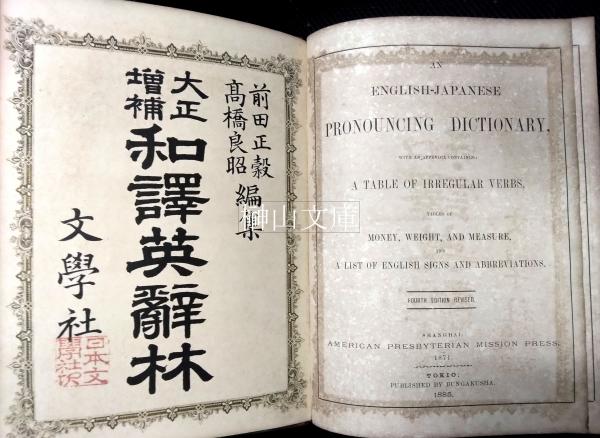 前田正穀
髙橋良昭
編集
大正
增補
和譯英辭林
文學社
榊山文庫
AN
ENGLISH-JAPANESE
PRONOUNCING DICTIONARY,
WITH AN APPENDIX CONTAINING
A TABLE OF IRREGULAR VERBS,
TABLES OF
MONEY, WEIGHT, AND MEASURE,
AND
A LIST OF ENGLISH SIGNS AND ABBREVIATIONS.
FOURTH EDITION REVISED.
SHANGHAI:
AMERICAN PRESBYTERIAN MISSION PRESS.
1871.
TOKIO:
PUBLISHED BY BUNGAKUSHA.
1885.